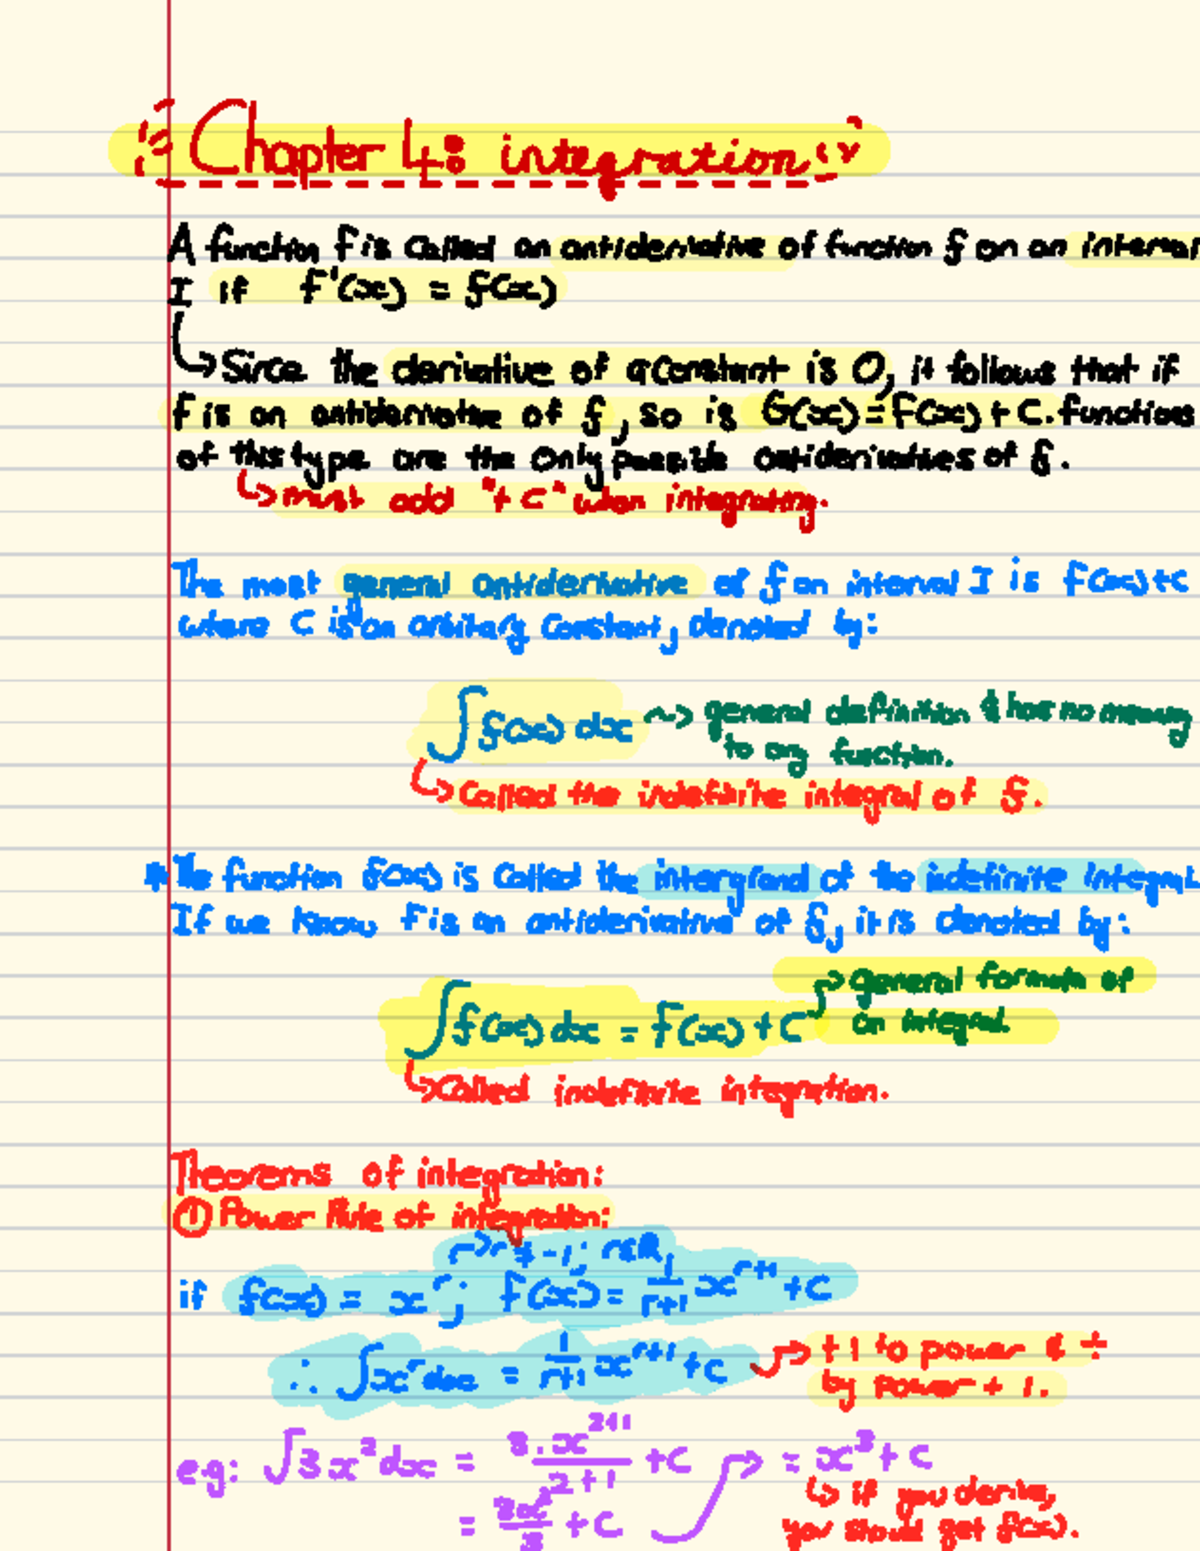 Chapter 4: integration
A function F is called an antiderivative of function f on an interval
I if F'(x) = f(x)
↳ Since the derivative of a constant is 0, it follows that if
F is an antiderivative of f, so is G(x) = F(x) + C. functions
of this type are the only possible antiderivatives of f.
↳ must add "+ C" when integrating.
The most general antiderivative of f on interval I is F(x)+C
where C is an arbitary constant, denoted by:
∫ f(x) dx ~> general definition & has no meaning
to any function.
↳ Called the indefinite integral of f.
* The function f(x) is called the intergrand of the indefinite integral.
If we know F is an antiderivative of f, it is denoted by:
∫ f(x) dx = F(x) + C → general formula of
an integral.
↳ Called indefinite integration.
Theorems of integration:
① Power Rule of integration:
→ r ≠ -1; r∈ℝ
if f(x) = x^r ; F(x) = 1/(r+1) x^(r+1) + C
∴ ∫x^r dx = 1/(r+1) x^(r+1) + C → +1 to power & ÷
by power + 1.
e.g: ∫3x² dx = 3.x^(2+1)/(2+1) + C → = x³ + C
↳ if you derive,
you should get f(x).